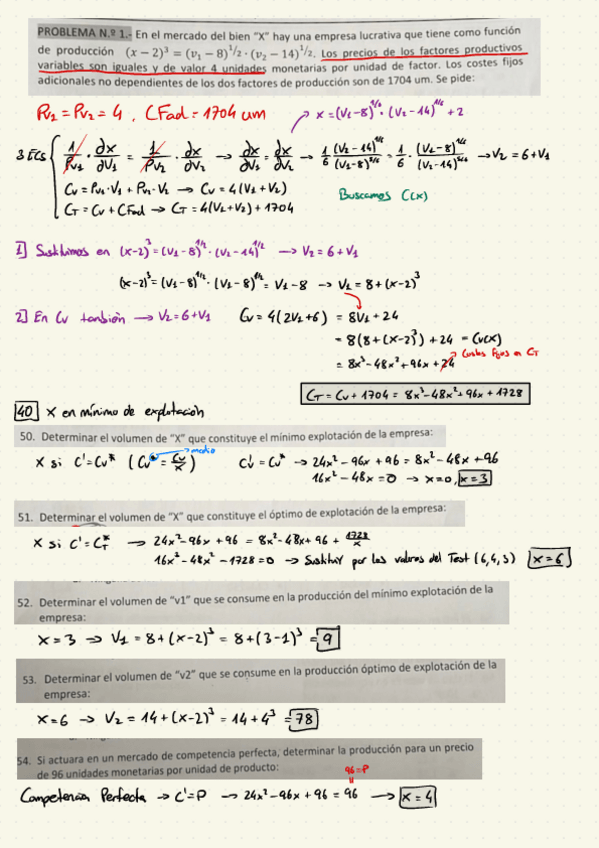 PROBLEMA N.º 1.- En el mercado del bien "X" hay una empresa lucrativa que tiene como función
de producción (x − 2)³ = (v₁ − 8)^1/2 · (v₂ − 14)^1/2. Los precios de los factores productivos
variables son iguales y de valor 4 unidades monetarias por unidad de factor. Los costes fijos
adicionales no dependientes de los dos factores de producción son de 1704 um. Se pide:
Pv₁ = Pv₂ = 4 , CFad = 1704 um
x = (V₁−8)^1/6 · (V₂−14)^1/6 + 2
3 ECS
1/Pv₁ · ∂x/∂V₁ = 1/Pv₂ · ∂x/∂V₂ → ∂x/∂V₁ = ∂x/∂V₂ → 1/6 (V₂−14)^1/6/(V₁−8)^5/6 = 1/6 · (V₁−8)^1/6/(V₂−14)^5/6 → V₂ = 6+V₁
Cv = Pv₁·V₁ + Pv₂·V₂ → Cv = 4(V₁+V₂)
CT = Cv + CFad → CT = 4(V₁+V₂) + 1704
Buscamos C(x)
1] Sustituimos en (x−2)³ = (V₁−8)^1/2 · (V₂−14)^1/2 → V₂ = 6+V₁
(x−2)³ = (V₁−8)^1/2 · (V₁−8)^1/2 = V₁−8 → V₁ = 8+(x−2)³
2] En Cv también → V₂ = 6+V₁ Cv = 4(2V₁+6) = 8V₁ + 24
= 8(8+(x−2)³) + 24 = Cv(x)
= 8x³ − 48x² + 96x + 24
Costes Fijos en CT
CT = Cv + 1704 = 8x³ − 48x² + 96x + 1728
40 x en mínimo de explotación
50. Determinar el volumen de "X" que constituye el mínimo explotación de la empresa:
x si C' = Cv* (Cv* = Cv/x) medio C'v = Cv* → 24x² − 96x + 96 = 8x² − 48x + 96
16x² − 48x = 0 → x=0, x=3
51. Determinar el volumen de "X" que constituye el óptimo de explotación de la empresa:
x si C' = CT* → 24x² − 96x + 96 = 8x² − 48x + 96 + 1728/x
16x² − 48x² − 1728 = 0 → Sustituir por los valores del Test (6,4,3) x = 6
52. Determinar el volumen de "v1" que se consume en la producción del mínimo explotación de la
empresa:
x = 3 → V₁ = 8+(x−2)³ = 8+(3−1)³ = 9
53. Determinar el volumen de "v2" que se consume en la producción óptimo de explotación de la
empresa:
x = 6 → V₂ = 14+(x−2)³ = 14+4³ = 78
54. Si actuara en un mercado de competencia perfecta, determinar la producción para un precio
de 96 unidades monetarias por unidad de producto:
96=P
Competencia Perfecta → C'=P → 24x² − 96x + 96 = 96 → x = 4